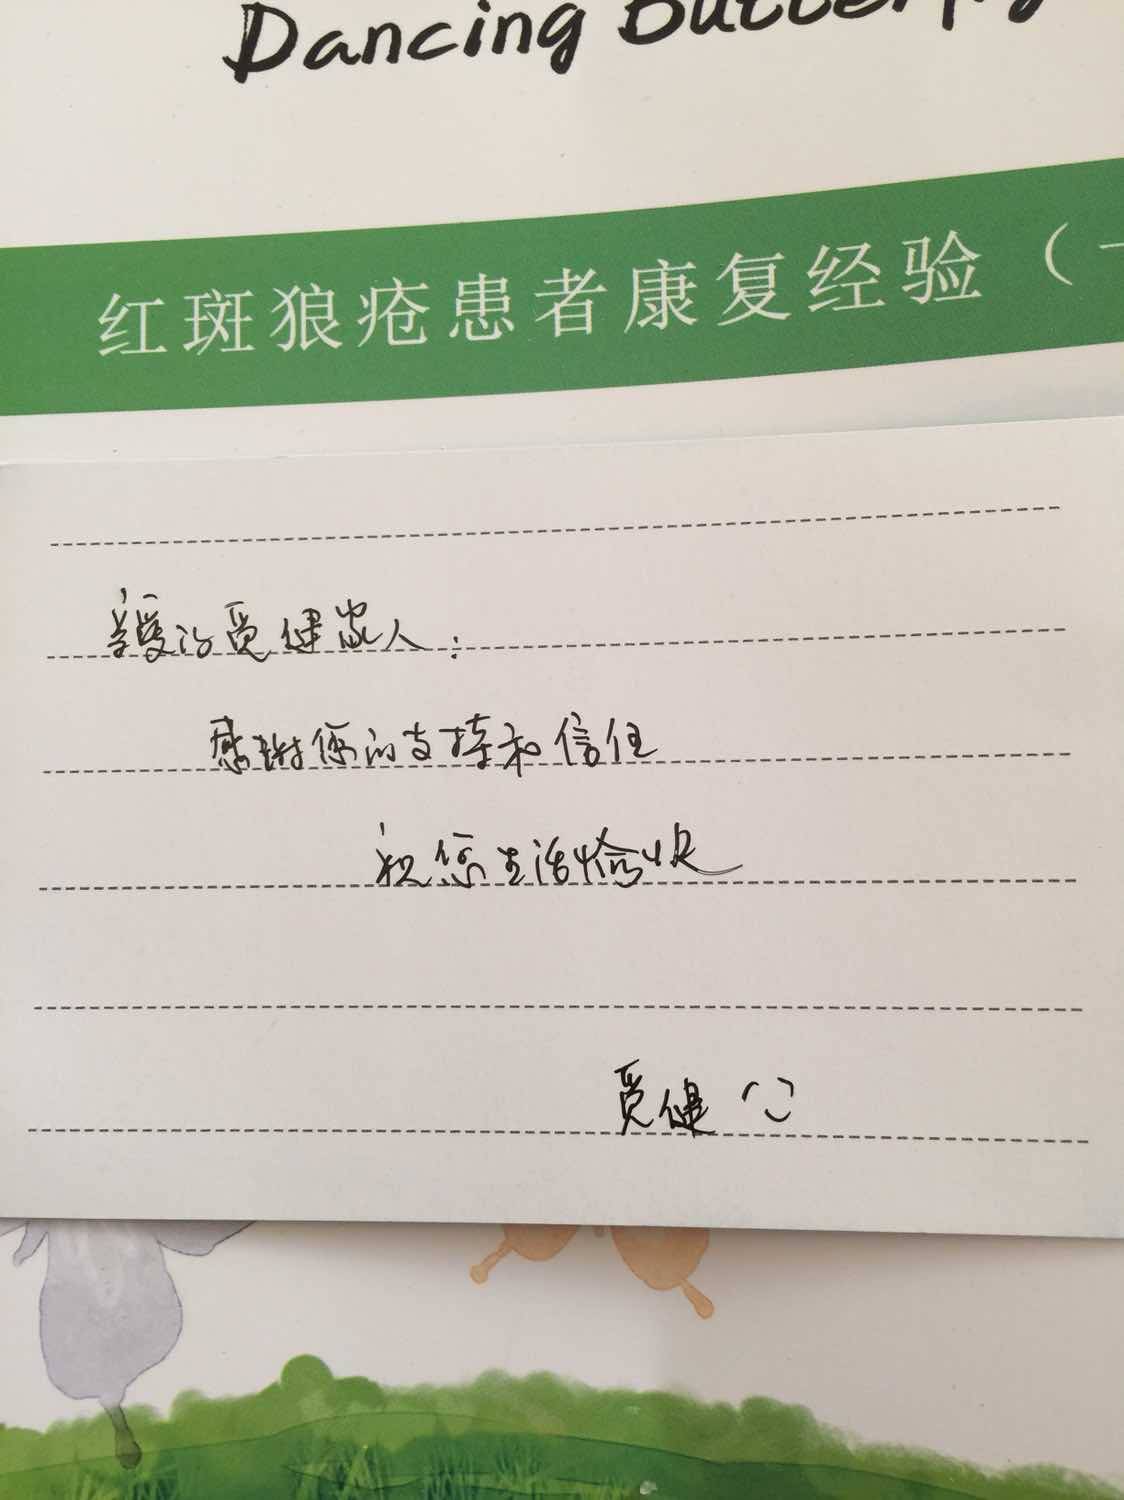 Dancing Butterfly
红斑狼疮患者康复经验（一
亲爱的觅健家人：
感谢您的支持和信任
祝您生活愉快
觅健